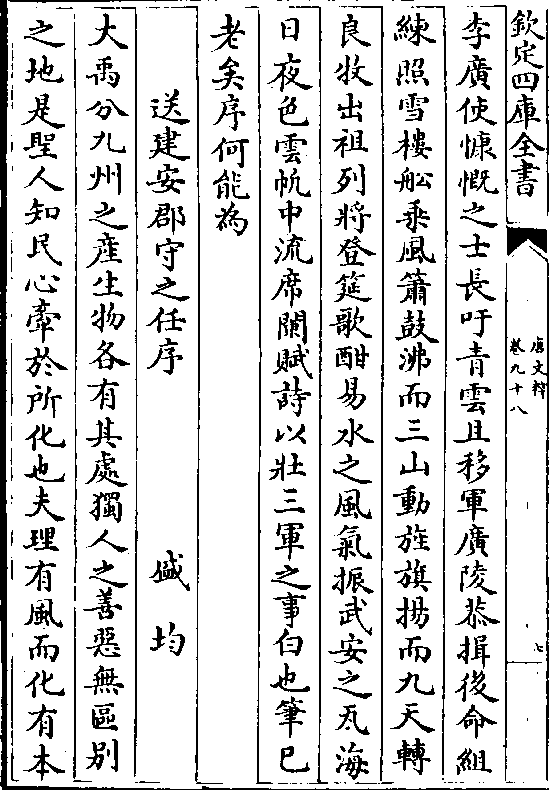 欽定四庫全書
唐文粹
卷九十八
七
李廣使慷慨之士長吁青雲且移軍廣陵恭揖後命組
練照雪樓船乘風簫鼓沸而三山動旌旗揚而九天轉
良牧出祖列將登筵歌酣易水之風氣振武安之瓦海
日夜色雲帆中流席闌賦詩以壯三軍之事白也筆已
老矣序何能為
送建安郡守之任序 盛均
大禹分九州之産生物各有其處獨人之善惡無區別
之地是聖人知民心牽於所化也夫理有風而化有本